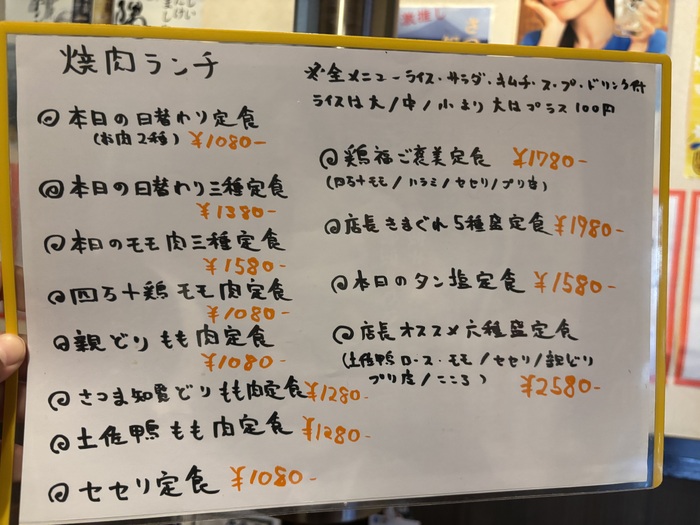 焼肉ランチ
※全メニューライス・サラダ・キムチ・スープ・ドリンク付
ライスは大/中/小より 大はプラス100円
◎本日の日替わり定食
(お肉2種) ¥1080-
◎本日の日替わり三種定食
¥1380-
◎本日のモモ肉三種定食
¥1580-
◎四万十鶏モモ肉定食
¥1080-
◎親どりもも肉定食
¥1080-
◎さつま知覧どりもも肉定食 ¥1280-
◎土佐鴨もも肉定食 ¥1280-
◎セセリ定食 ¥1080-
◎鶏福ご褒美定食 ¥1780-
(四万十モモ/ハラミ/セセリ/ブリ皮)
◎店長きまぐれ5種盛定食 ¥1980-
◎本日のタン塩定食 ¥1580-
◎店長オススメ六種盛定食
(土佐鴨ロース・モモ/セセリ/親どり
ブリ皮/こころ) ¥2580-